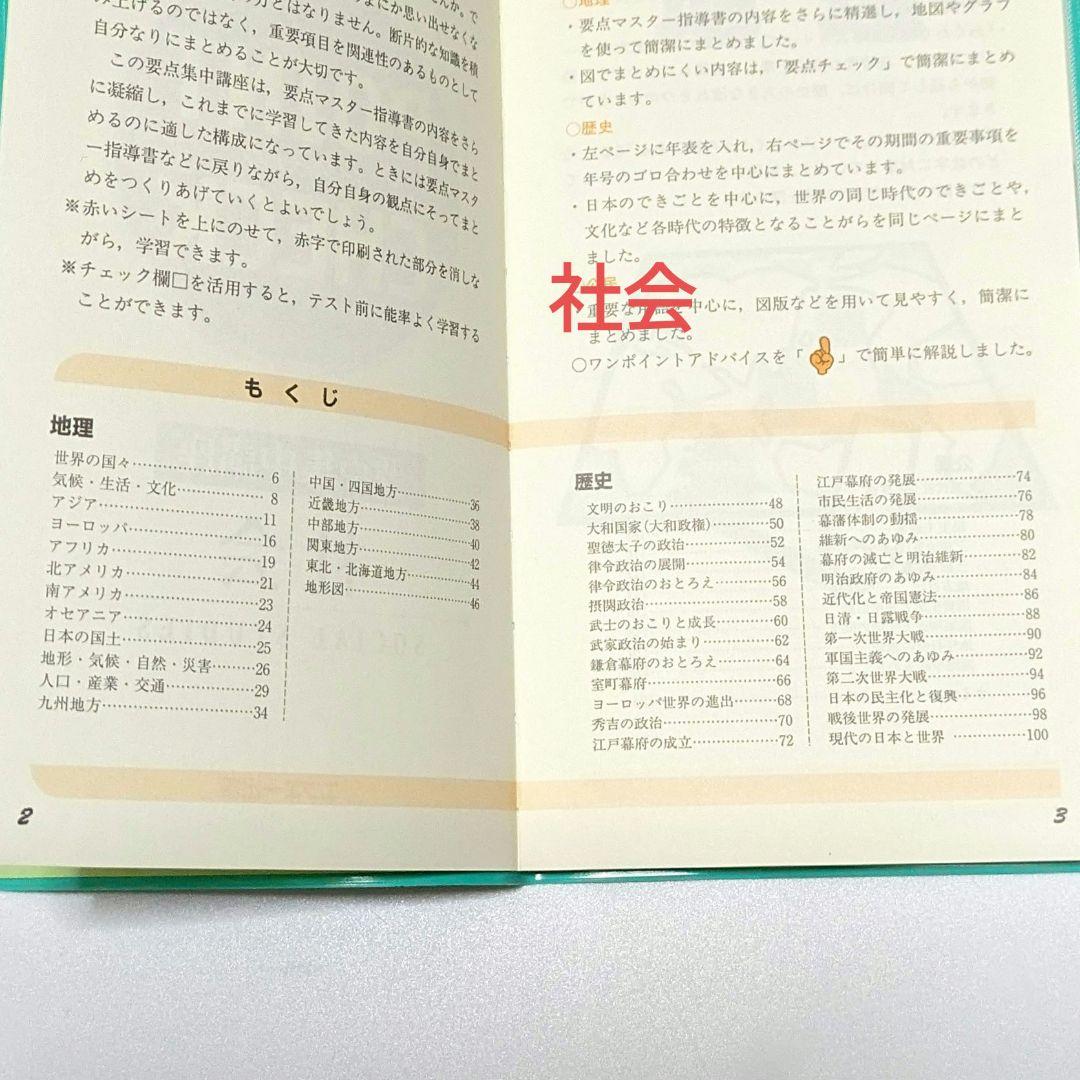 み上げるのではなく，重要項目を関連性のあるものとして
自分なりにまとめることが大切です。
この要点集中講座は，要点マスター指導書の内容をさら
に凝縮し，これまでに学習してきた内容を自分自身でまと
めるのに適した構成になっています。ときには要点マスタ
ー指導書などに戻りながら，自分自身の観点にそってまと
めをつくりあげていくとよいでしょう。
※赤いシートを上にのせて，赤字で印刷された部分を消しな
がら，学習できます。
※チェック欄□を活用すると，テスト前に能率よく学習する
ことができます。
もくじ
地理
世界の国々 6
気候・生活・文化 8
アジア 11
ヨーロッパ 16
アフリカ 19
北アメリカ 21
南アメリカ 23
オセアニア 24
日本の国土 25
地形・気候・自然・災害 26
人口・産業・交通 29
九州地方 34
中国・四国地方 36
近畿地方 38
中部地方 40
関東地方 42
東北・北海道地方 44
地形図 46
2
○地理
・要点マスター指導書の内容をさらに精選し，地図やグラフ
を使って簡潔にまとめました。
・図でまとめにくい内容は，「要点チェック」で簡潔にまとめ
ています。
○歴史
・左ページに年表を入れ，右ページでその期間の重要事項を
年号のゴロ合わせを中心にまとめています。
・日本のできごとを中心に，世界の同じ時代のできごとや，
文化など各時代の特徴となることがらを同じページにまと
めました。
社会
・重要な用語を中心に，図版などを用いて見やすく，簡潔に
まとめました。
○ワンポイントアドバイスを「☝」で簡単に解説しました。
歴史
文明のおこり 48
大和国家(大和政権) 50
聖徳太子の政治 52
律令政治の展開 54
律令政治のおとろえ 56
摂関政治 58
武士のおこりと成長 60
武家政治の始まり 62
鎌倉幕府のおとろえ 64
室町幕府 66
ヨーロッパ世界の進出 68
秀吉の政治 70
江戸幕府の成立 72
江戸幕府の発展 74
市民生活の発展 76
幕藩体制の動揺 78
維新へのあゆみ 80
幕府の滅亡と明治維新 82
明治政府のあゆみ 84
近代化と帝国憲法 86
日清・日露戦争 88
第一次世界大戦 90
軍国主義へのあゆみ 92
第二次世界大戦 94
日本の民主化と復興 96
戦後世界の発展 98
現代の日本と世界 100
3